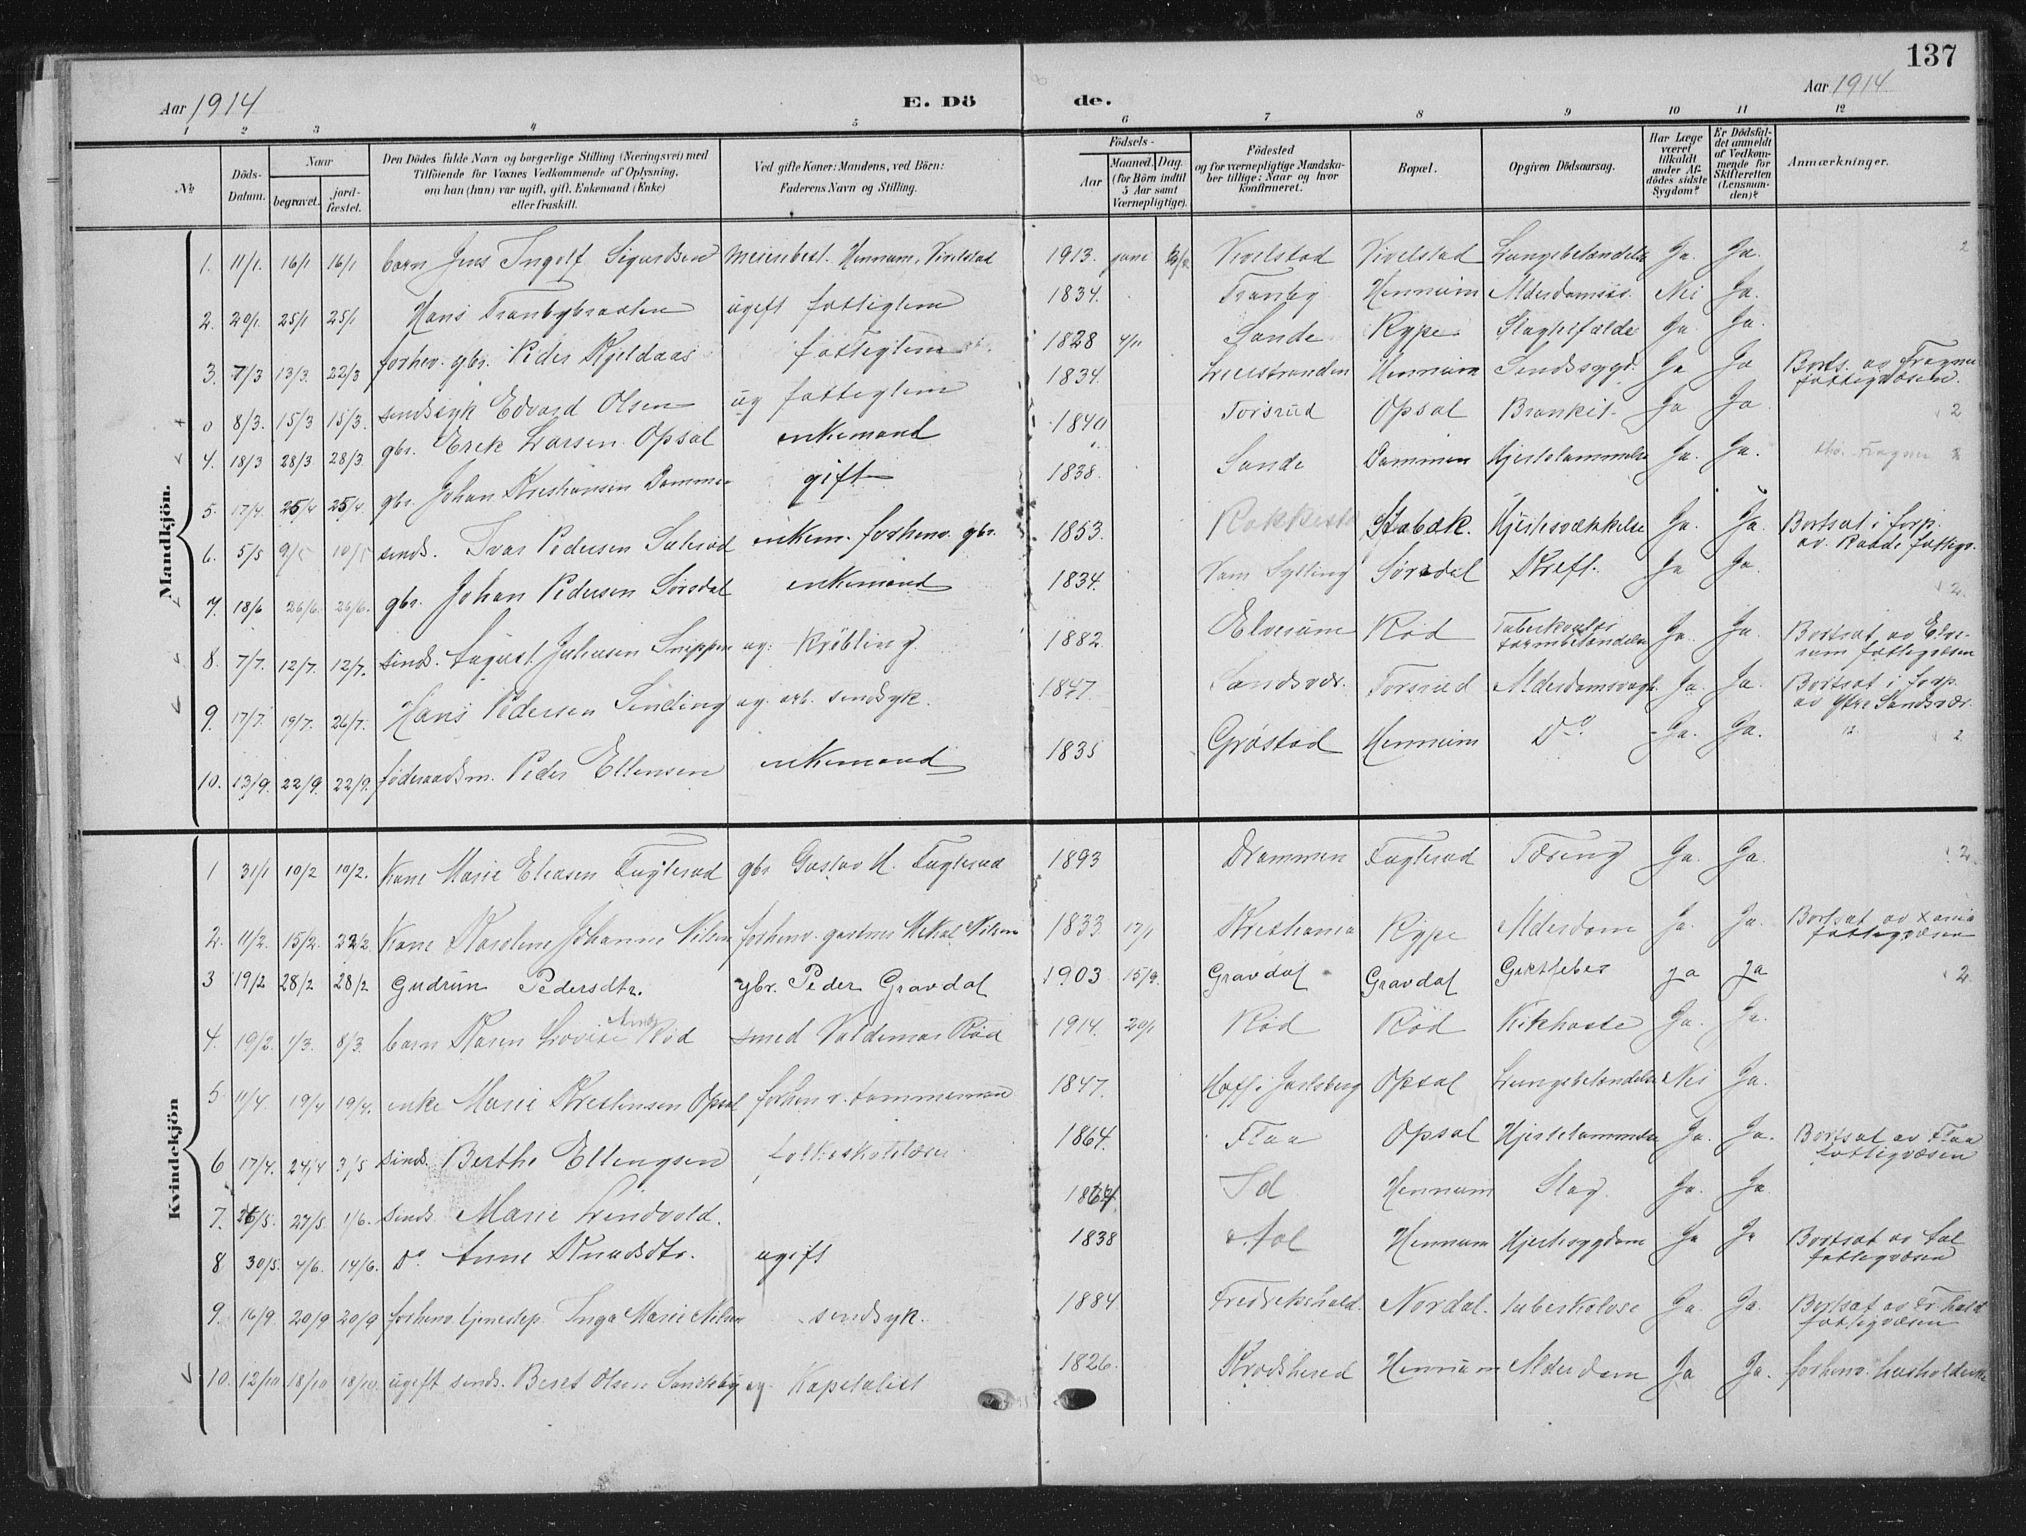 137
Aar 1914
E. Dö
de.
Aar 1914
1 2 3 4 5 6 7 8 9 10 11 12
№
Döds-
Datum.
Naar
begravet.
jord-
fæstet.
Den Dödes fulde Navn og borgerlige Stilling (Næringsvei) med
Tilföiende for Voxnes Vedkommende af Oplysning,
om han (hun) var ugift, gift, Enkemand (Enke)
eller fraskilt.
Ved gifte Koner: Mandens, ved Börn:
Faderens Navn og Stilling.
Födsels-
Aar
Maaned. Dag.
(for Börn indtil
5 Aar samt
Værnepligtige).
Födested
og for værnepligtige Mandska-
ber tillige: Naar og hvor
konfirmeret.
Bopæl.
Opgiven Dödsaarsag.
Har Læge
været
tilkaldt
under Af-
dödes sidste
Sygdom?
Er Dödsfal-
det anmeldt
af Vedkom-
mende for
Skifteretten
(Lensman-
den)?
Anmærkninger.
Mandkjön.
1. 11/1. 16/1 16/1 barn Jens Ingolf Sigurdsen Meieribest. Hennum, Vivelstad 1913. juni Vivelstad Vivelstad Lungebetændelse Ja. Ja. 2
2. 20/1. 25/1 25/1 Hans Tranbybraaten ugift fattiglem 1834. Tranby Hennum Alderdomss. Nei Ja.
3. 7/3 13/3. 22/3 forhen. gbr. Peder Kjeldaas fattiglem 1828 4/11 Sande Rype Slagtilfælde Ja. Ja.
0 8/3. 15/3 15/3. sindssyk Edvard Olsen ug fattiglem 1834. Lierstranden Hennum Sindssygd. Ja Ja Borts. av Frogner
fattigvæsen.
4. 18/3 28/3 28/3. gbr. Erik Larsen Opsal enkemand 1840 Torsrud Opsal Bronkit. Ja Ja. 2
5. 17/4. 25/4 25/4. gbr. Johan Kristiansen Dammen gift 1838. Sande Dammen Hjertelammelse Ja. Ja. Frogner
6. 5/5 9/5 10/5 sinds. Ivar Pedersen enkem. forhenv. gbr. 1853. Rakkestad Stabæk. Hjertesvækkelse Ja. Ja. Bortsat i forp.
av. Raade fattigv.
7. 18/6 26/6. 26/6. gbr. Johan Pedersen Sørsdal enkemand 1834. Sylling Sørsdal Kreft. Ja Ja. 2.
8. 7/7. 12/7. 12/7. sinds. August Johansen Snippen ug. Krøbling. 1882. Elverum Rød Tuberkuløs
tarmbetændelse Ja. Ja. Bortsat av Elve-
rum fattigvæsen
9. 17/7. 19/7. 26/7. Hans Pedersen Sinding ug. arb. sindssyk. 1847. Sandsvær. Torsrud Alderdomssvagh. Ja. Ja. Bortsat i forp.
av Ytre Sandsvær.
10. 13/9. 22/9. 22/9. føderaadsm. Peder Ellensen enkemand 1835 Grøstad Hennum Do Ja. Ja. 2
Kvindekjön
1 31/1 10/2 10/2. Kone Marie Eliasen Fuglerud gbr Gustav M. Fuglerud 1893 Drammen Fuglerud Tæring Ja. Ja. 2.
2. 11/2. 15/2. 22/2. Kone Karoline Johanne Nilsen forhenv. gartner Mikal Nilsen 1833. 17/1 Kristiania Rype Alderdom Ja. Ja. Bortsat av Xania
fattigvæsen
3 19/2 28/2 28/2 Gudrun Pedersdtr. gbr. Peder Gravdal 1903 15/9. Gravdal Gravdal Giktfeber ja ja 2
4. 19/2. 1/3. 8/3. barn Karen Lovise Rød smed Valdemar Rød 1914. 20/1 Rød Rød Kikhoste Ja. Ja.
5 11/4. 19/4 19/4. enke Marie Kristensen Opsal forhenv. tømmermand 1847. Hoff i Jarlsberg Opsal Lungebetændelse Nei Ja.
6 17/4. 24/4 3/5 sinds. Berthe Ellingsen 1864. Flaa Opsal Hjertelammelse Ja. Ja. Bortsat av Flaa
fattigvæsen
7. 26/5. 27/5. 1/6. sinds Marie Lindvold. Id Hennum Slag. Ja. Ja
8 30/5. 4/6. 14/6. Do Anne Knudsdtr. ugift 1838 Aal Hennum Hjertesygdom Ja Ja Bortsat av Aal
fattigvæsen
9. 16/9 20/9 20/9 forhenv. tjenestep. Inga Marie Nilsen sindssyk. 1884 Fredrikshald. Nordal. tuberkulose Ja. Ja. Bortsat av Fr.hald
fattigvæsen
10. 12/10 18/10 18/10. ugift sinds. Beret Olsen ug. Kapitalist 1826. Krødsherad Hennum Alderdom Ja Ja. forhenv. husholderske